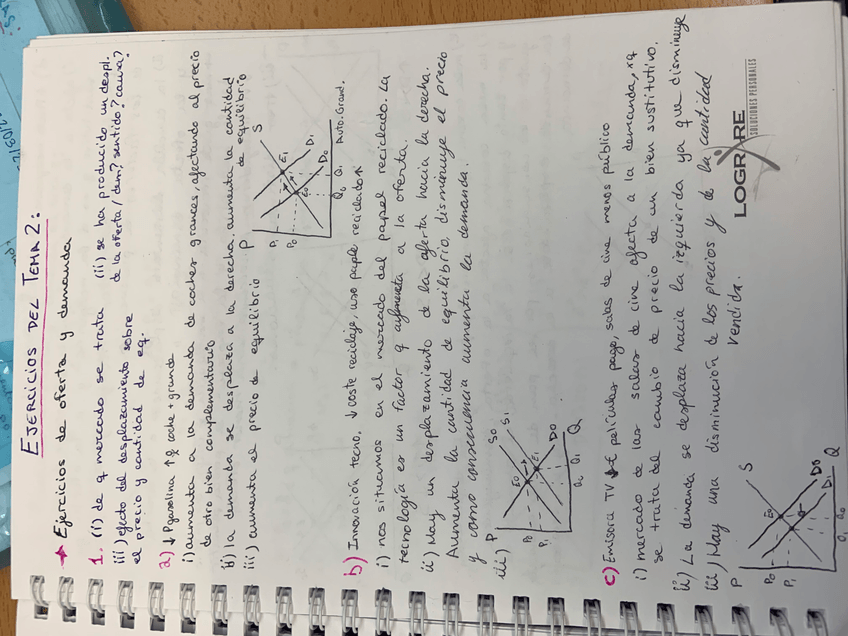 EJERCICIOS DEL TEMA 2:
→ Ejercicios de oferta y demanda
1. (i) de q mercado se trata (ii) se ha producido un despl. de la oferta/dem? sentido? causa?
iii) efecto del desplazamiento sobre
el precio y cantidad de eq.
a) ↓ Pgasolina ↑ coche + grande
i) aumenta a la demanda de coches grandes, afectando al precio
de otro bien complementario
ii) la demanda se desplaza a la derecha. aumenta la cantidad
de equilibrio
iii) aumenta el precio de equilibrio
P
S
P1
P0
E1
E0
D1
D0
Q0 Q1 Auto. Grand.
b) Innovación tecno, ↓ coste reciclaje, uso paple reciclado↑
i) nos situamos en el mercado del papel reciclado. La
tecnología es un factor q aumenta a la oferta.
ii) Hay un desplazamiento de la oferta hacia la derecha.
Aumenta la cantidad de equilibrio, disminuye el precio
y como consecuencia aumenta la demanda.
iii)
P
S0
S1
E0
E1
P0
P1
D0
Q0 Q1
Q
c) Emisora TV ↓€ películas pago, salas de cine menos público
i) mercado de las salas de cine afecta a la demanda, xq
se trata del cambio de precio de un bien sustitutivo.
ii) La demanda se desplaza hacia la izquierda ya que disminuye
iii) Hay una disminución de los precios y de la cantidad
vendida.
P
S
P0
P1
E0
D0
D1
Q1 Q0
Q
LOGRARE
SOLUCIONES PERSONALES